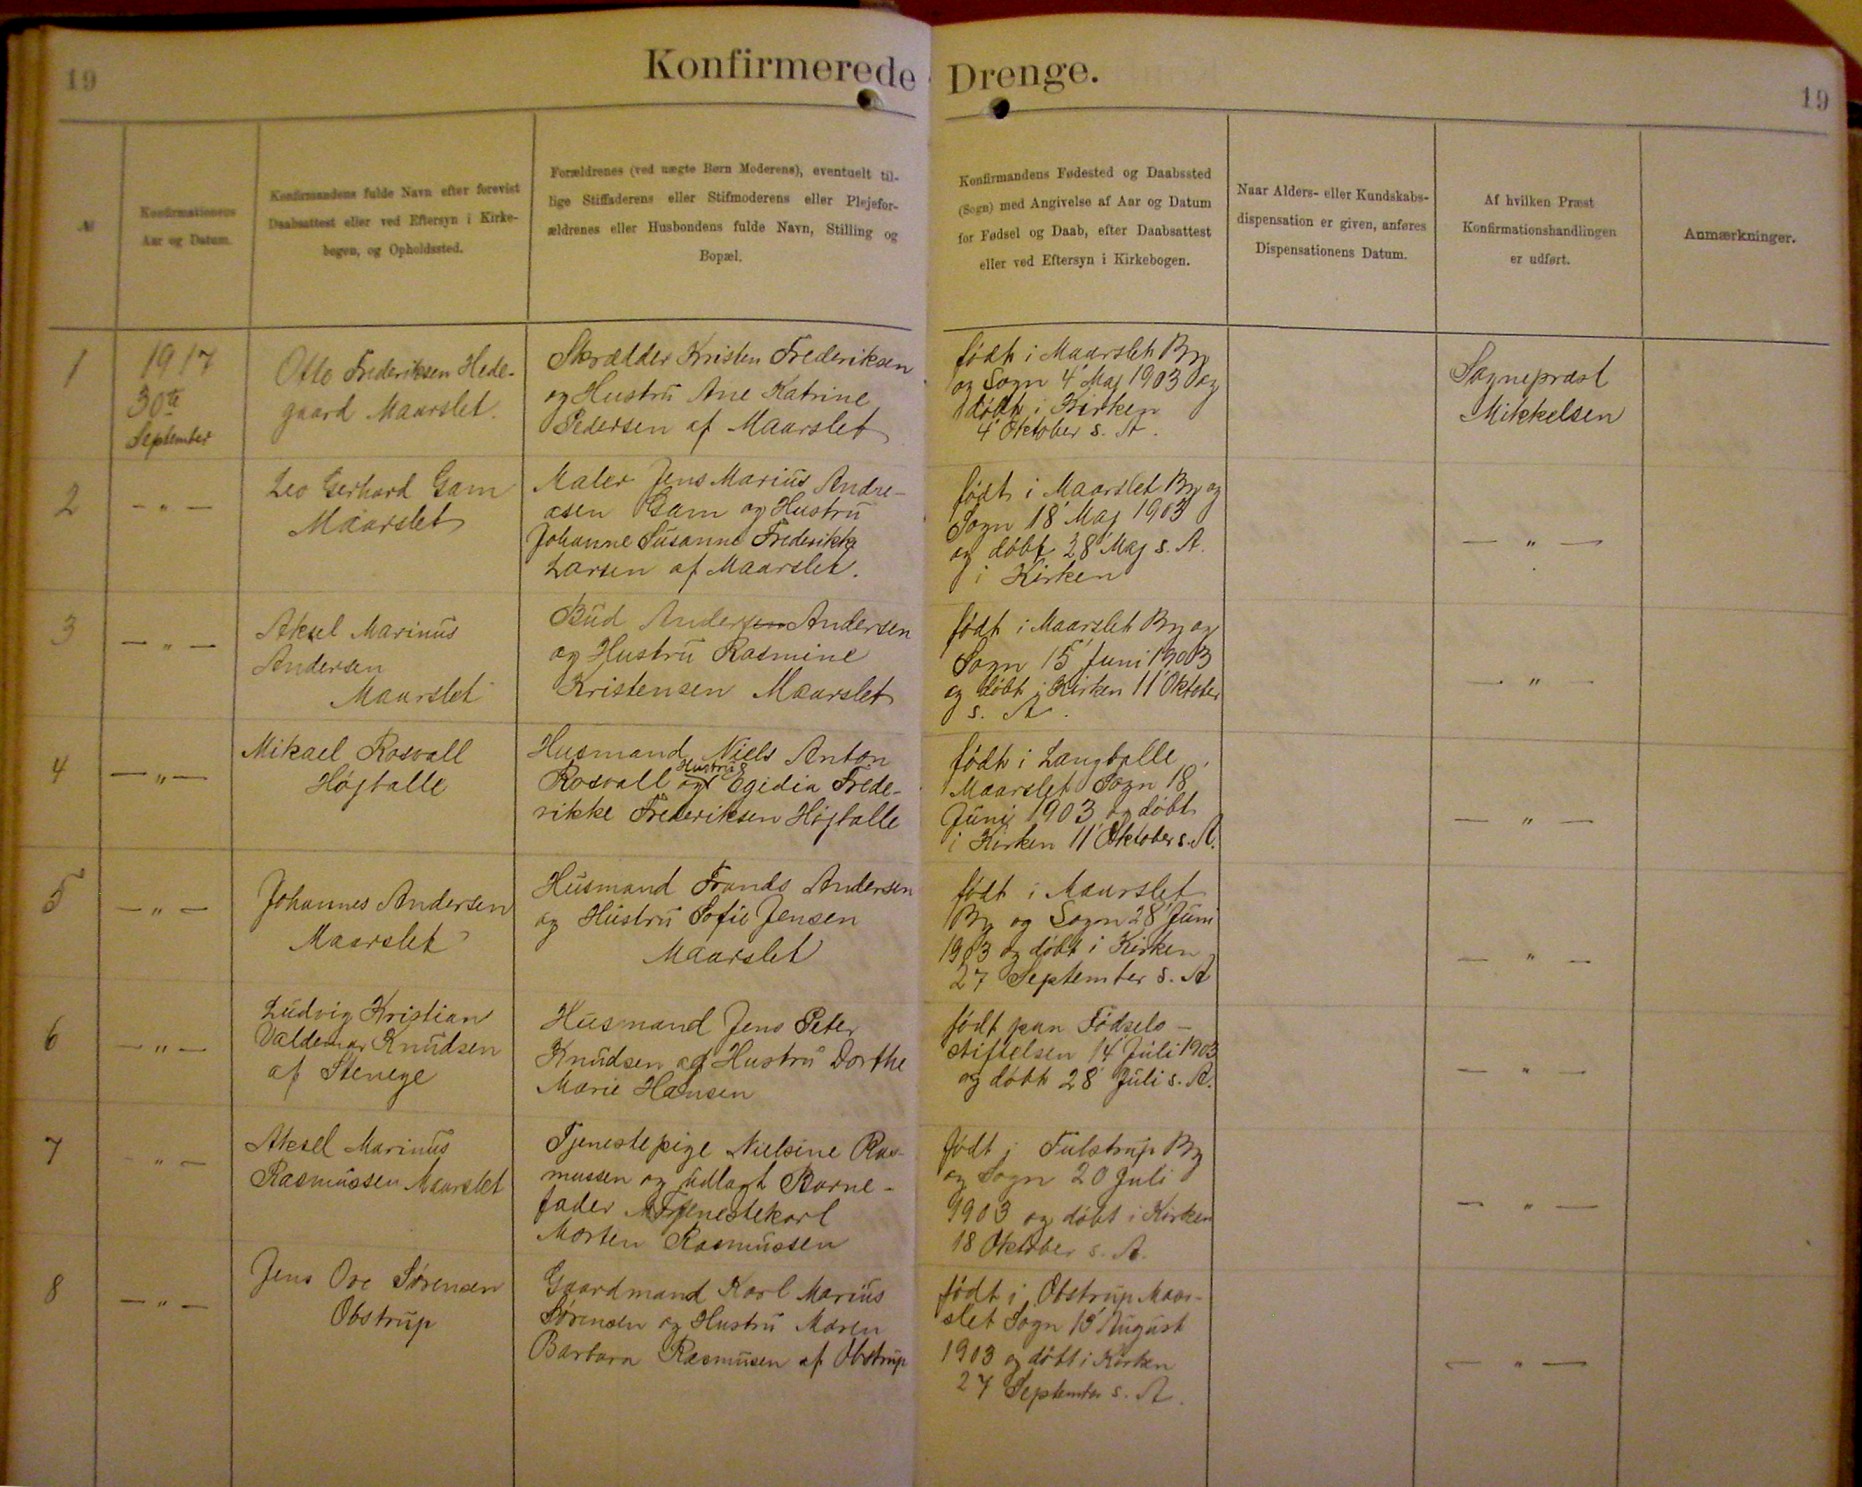 19
Konfirmerede Drenge.
19
№
Konfirmationens
Aar og Datum.
Konfirmandens fulde Navn efter forevist
Daabsattest eller ved Eftersyn i Kirke-
bogen, og Opholdssted.
Forældrenes (ved uægte Børn Moderens), eventuelt til-
lige Stiffaderens eller Stifmoderens eller Plejefor-
ældrenes eller Husbondens fulde Navn, Stilling og
Bopæl.
Konfirmandens Fødested og Daabssted
(Sogn) med Angivelse af Aar og Datum
for Fødsel og Daab, efter Daabsattest
eller ved Eftersyn i Kirkebogen.
Naar Alders- eller Kundskabs-
dispensation er given, anføres
Dispensationens Datum.
Af hvilken Præst
Konfirmationshandlingen
er udført.
Anmærkninger.
1
1917
30te
September
Otto Frederiksen Hede-
gaard Maarslet.
Skrædder Kristen Frederiksen
og Hustru Ane Katrine
Pedersen af Maarslet
født i Maarslet By
og Sogn 4' Maj 1903 og
døbt i Kirken
4' Oktober s. A.
Sognepræst
Mikkelsen
2
— " —
Leo Gerhard Gam
Maarslet
Maler Jens Marius Andre-
asen Gam og Hustru
Johanne Susanne Frederikke
Larsen af Maarslet.
født i Maarslet By og
Sogn 18' Maj 1903
og døbt 28' Maj s. A.
i Kirken
— " —
3
— " —
Aksel Marinus
Andersen
Maarslet
Bud Andersen Andersen
og Hustru Rasmine
Kristensen Maarslet
født i Maarslet By og
Sogn 15' Juni 1903
og døbt i Kirken 11' Oktober
s. A.
— " —
4
— " —
Mikael Rosvall
Højballe
Husmand Niels Anton
Rosvall og Hustru Egidia Frede-
rikke Frederiksen Højballe
født i Langballe,
Maarslet Sogn 18'
Juni 1903 og døbt
i Kirken 11' Oktober s. A.
— " —
5
— " —
Johannes Andersen
Maarslet
Husmand Frands Andersen
og Hustru Sofie Jensen
Maarslet
født i Maarslet
By og Sogn 28' Juni
1903 og døbt i Kirken
27 September s. A
— " —
6
— " —
Ludvig Kristian
Valdemar Knudsen
af Stenege
Husmand Jens Peter
Knudsen og Hustru Dorthe
Marie Hansen
født paa Fødsels-
stiftelsen 14' Juli 1903
og døbt 28' Juli s. A.
— " —
7
— " —
Aksel Marinus
Rasmussen Maarslet
Tjenestepige Nielsine Ras-
mussen og udlagt Barne-
fader Tjenestekarl
Morten Rasmussen
født i Tulstrup By
og Sogn 20 Juli
1903 og døbt i Kirken
18 Oktober s. A.
— " —
8
— " —
Jens Ove Sørensen
Obstrup
Gaardmand Karl Marius
Sørensen og Hustru Maren
Barbara Rasmusen af Obstrup
født i Obstrup Maar-
slet Sogn 13' August
1903 og døbt i Kirken
27 September s. A.
— " —